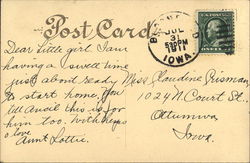 Post Card
JUL
31
5 PM
IOWA
Dear Little girl I am
having a swell time
just about ready
to start home. You
tell Avail this is for
him too. With hugs
& love
Aunt Lottie.
Miss Claudine Prisman
1024 N. Court St.
Ottumwa
Iowa.